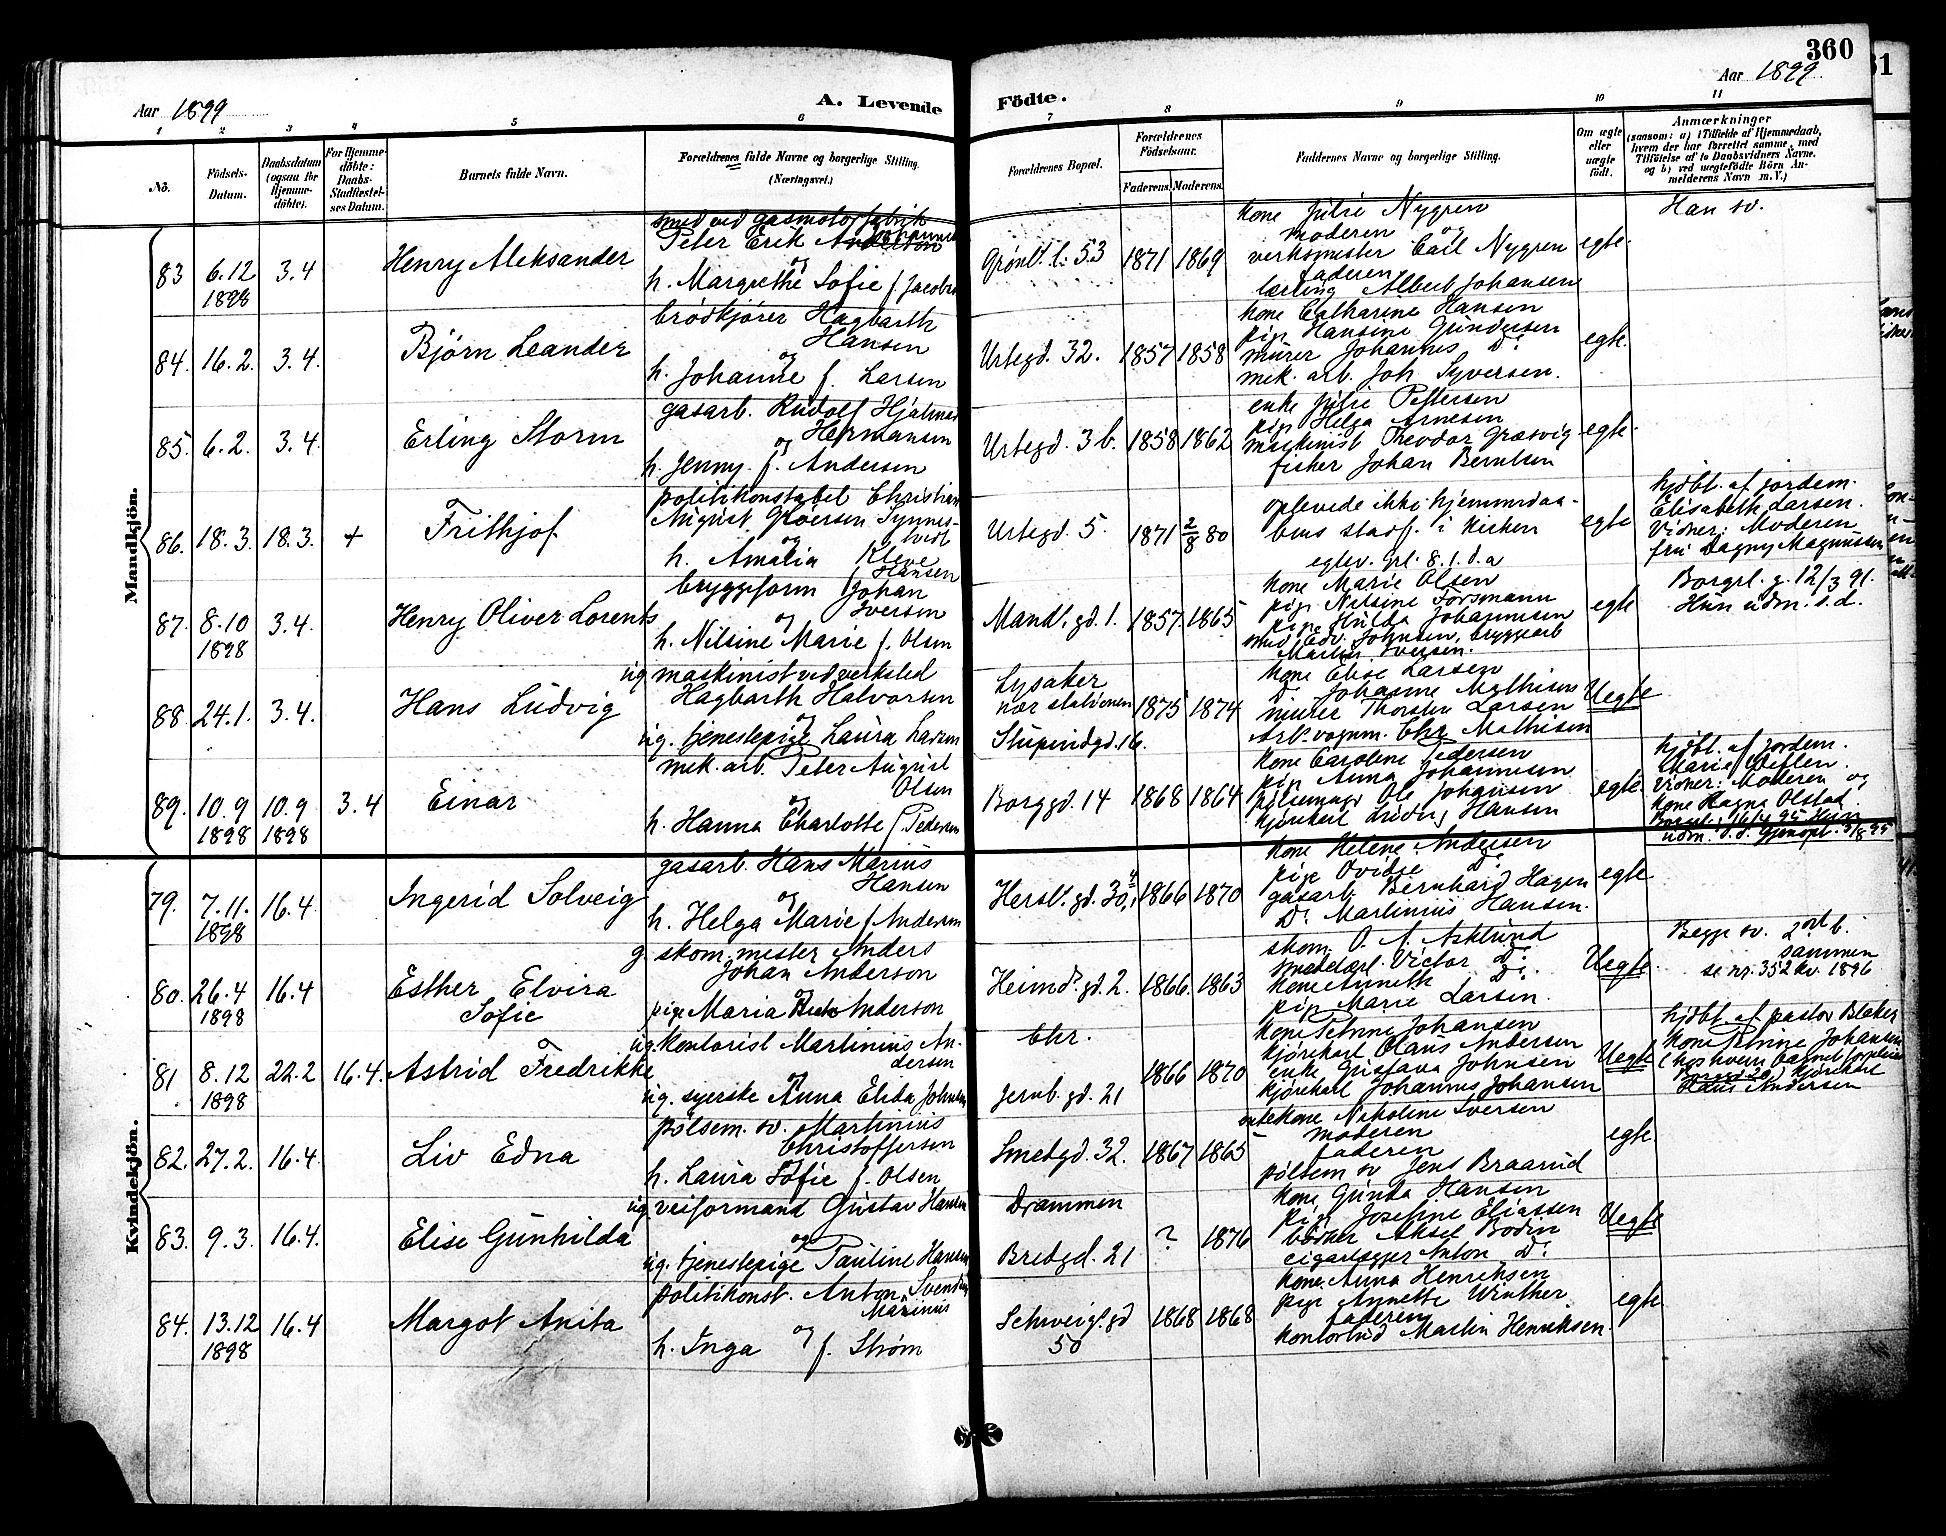 360
31
Aar 1899
A. Levende
Födte.
Aar 1899
1 2 3 4 5 6 7 8 9 10 11
No.
Födsels-Datum.
Daabsdatum (ogsaa for Hjemme-döbte).
For Hjemme-döbte: Daabs-Stadfæstel-ses Datum.
Barnets fulde Navn.
Forældrenes fulde Navne og borgerlige Stilling.
(Næringsvei.)
Forældrenes Bopæl.
Forældrenes Födselsaar.
Faderens. Moderens.
Faddernes Navne og borgerlige Stilling.
Om ægte eller uægte födt.
Anmærkninger
(saasom: a) i Tilfælde af Hjemmedaab, hvem der har forrettet samme, med Tilföielse af to Daabsvidners Navne, og b) ved uægtefödte Börn An-melderens Navn m. V.)
Mandkjön.
83 6.12 1898 3.4 Henry Aleksander
smed ved gasmotorfabrik
Peter Erik
og
h. Margrethe Sofie f. Jacobs
Grønl. l. 53 1871 1869
kone Julie Nygren
moderen og
verksmester Carl Nygren
faderen
lærling Albert Johansen
egte.
Han sv.
84. 16.2. 3.4. Bjørn Leander
brødkjører Hagbarth
Hansen
og
h. Johanne f. Larsen
Urtegd. 32. 1857 1858
kone Catharine Hansen
pige Hansine Gundersen
murer Johannes Do
mek. arb. Joh. Syversen.
egte.
85. 6.2. 3.4. Erling Storm
gasarb. Rudolf Hjalmar
Hermansen
og
h. Jenny f. Andersen
Urtegd. 3 b. 1858 1862
enke Julie Pettersen
pige Helga Arnesen
maskinist Theodor Græsvig
fisker Johan Berntsen
egte.
86. 18.3. 18.3. + Frithjof
politikonstabel Christian
August Grøersen Synnes-
tvedt
og
h. Amalia Kleve
Urtegd. 5. 1871 2/8 80
oplevede ikke hjemmedaa-
bens stadf. i kirken
egtev. grl. 8. 1. d. a
egte
hjdbt. af jordem.
Elisabeth Larsen.
Vidner: Moderen
fru Dagny Magnussen
87. 8.10 1898 3.4. Henry Oliver Lorents
bryggeform Johan
Hansen
Iversen
og
h. Nilsine Marie f. Olsen
Mandl. gd. 1. 1857. 1865
kone Marie Olsen
pige Nilsine Forsmann
pige Hulda Johannesen
smed Edv. Johnsen, bryggearb
Martin Iversen.
egte
Borgrl. g. 12/3 91.
Hun udm. s. d.
88. 24.1. 3.4. Hans Ludvig
ug. maskinist ved verksted
Hagbarth Halvorsen
og
ug. tjenestepige Laura Larsen
Lysaker
nær stationen
Stupindgd. 16. 1875 1874
kone Elise Larsen
D. Johanne Mathisen
murer Thorsten Larsen
Chr Mathisen
Uegte
89. 10.9 1898 10.9 1898 3.4 Einar
mek. arb. Peter August
Olsen
og
h. Hanna Charlotte f. Pedersen
Borggd. 14 1868 1864
kone Caroline Pedersen
pige Anna Johannesen
pølsemagr Ole Johansen
kjørekarl Ludvig Hansen
egte.
hjdbt. af jordem.
Marie
Vidner: Moderen og
kone Ragna Olstad.
Kvindekjön.
79. 7.11. 1898 16.4 Ingerid Solveig
gasarb. Hans Marius
Hansen
og
h. Helga Marie f. Andersen
Hersl. gd. 30, 1866 1870
kone Helene Andersen
pige Ovidie Do
gasarb Bernhard Hagen
Do Martinius Hansen.
egte
80. 26.4 1898 16.4 Esther Elvira
Sofie
g. skom. mester Anders
Johan Anderson
og
pige Maria Anderson
Heimd. gd. 2. 1866. 1863
skom. O. A. Asklund
Victor Do
kone Annette Do
pige Marie Larsen.
Uegte.
Begge sv. 2det b.
sammen
se nr. 352 kv. 1896
81 8.12 1898 22.2 16.4. Astrid Fredrikke
ug. kontorist Martinius An-
dersen
og
ug. syerske Anna Elida Johnsen
Chr.
Jernb. gd. 21 1866 1870
kone Petrine Johansen
kjørekarl Olaus Andersen
enke Gustava Johnsen
kjørekarl Johannes Johansen
Uegte
hjdbt af pastor Blaker
kone Petrine Johansen
(hos hvem barnet forpleies
Borggd 20) kjørekarl
Olaus Andersen
82. 27.2. 16.4. Liv Edna
pølsem. sv. Martinius
Christoffersen
og
h. Laura Sofie f. Olsen
Smedgd. 32. 1867 1865
Nikoline Iversen
moderen
faderen
pølsem sv Jens Braarud
egte.
83. 9.3. 16.4. Elise Gunhilda
ug. veiformand Gustav Hansen
og
ug. tjenestepige Pauline Hansen
Drammen
Bredgd. 21 ? 1876
kone Gunda Hansen
pige Josefine Eliassen
bødker Aksel Bodin
Anton Do
Uegte
84. 13.12 1898 16.4 Margot Anita
politikonst. Anton Svendsen
Marinus
og
h. Inga f. Strøm
Schweig. gd
50 1868 1868
kone Anna Henriksen
pige Annette Winther
faderen
kontorbud Martin Henriksen.
egte.